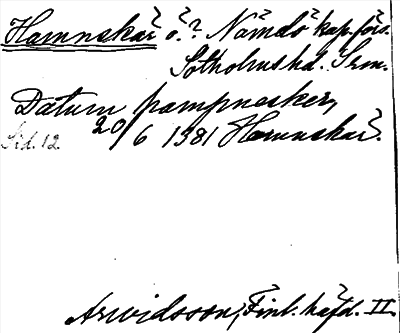 Hamnskär ö.? Nämdö kap.förs.
Sotholms hd. Srm.
Datum pampnesker,
20/6 1381 Hamnskär.
Sid. 12
Arwidsson, Finl. häfd. II.